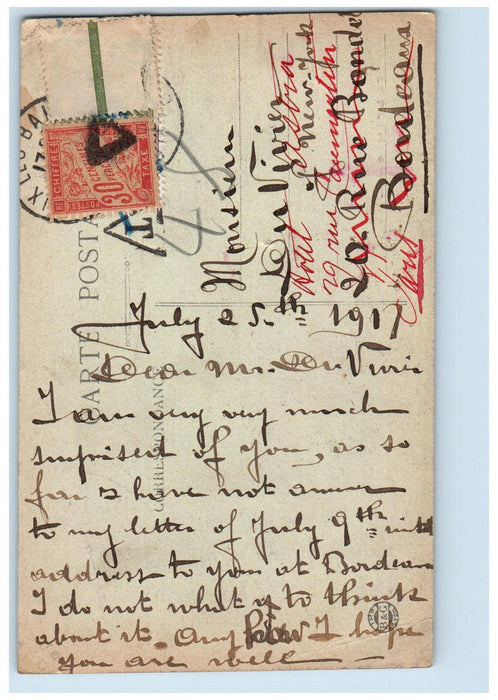 CARTE POSTALE
CORRESPONDANCE
Monsieur
Du Vivier
20. Rue
Bordeaux
Hotel
of New-York
29 rue
Paris
CHIFFRE TAXE
30 CENTIMES
POSTES
T
July 25th 1917
Dear Mr. Du Vivier
I am very very much
surprised of you, as so
far I have not answer
to my letter of July 9th with
address to you at Bordeaux
I do not what to think
about it. Any how I hope
you are well —
B&G